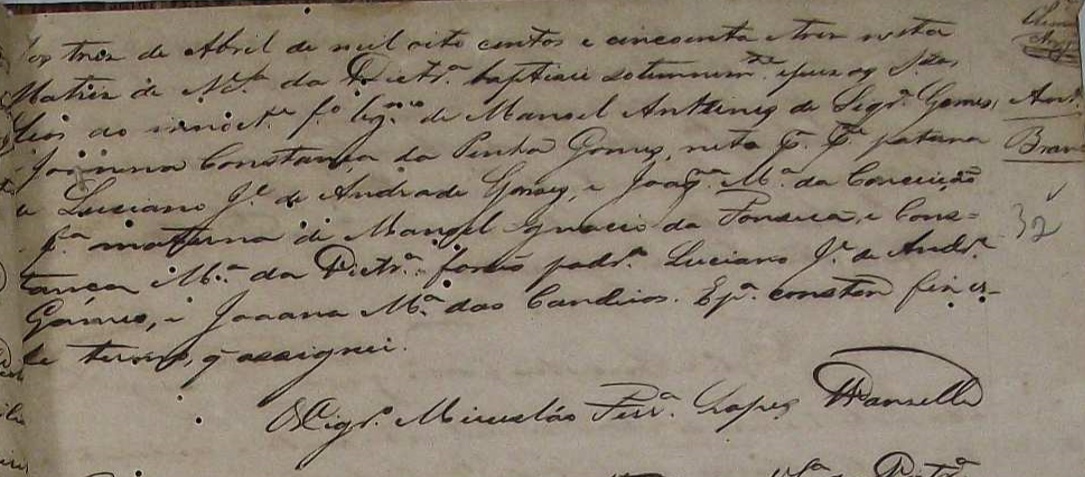 Aos tres de Abril de mil oito centos e cincoenta e tres nesta
Matriz de N. Sª da Piedª baptisei solemnemte e puz os Stos
Oleos ao innocte fº legmo de Manoel Antunes de Siqrª Gomes,
Joanna Constança da Penha Gomes, neto P. Pª paterna
de Luciano Jº de Andrade Gomes, e Joaqª Mª da Conceição
Pª materna de Manoel Ignacio da Fonseca, e Cons=
tança Mª da Piedª: forão padrª Luciano Jº de Andrª
Gomes, e Joanna Mª das Candeias. E pª constar fiz es-
te termo, q assignei.
O Vigrº Ferrª Lopes
Ant.
32